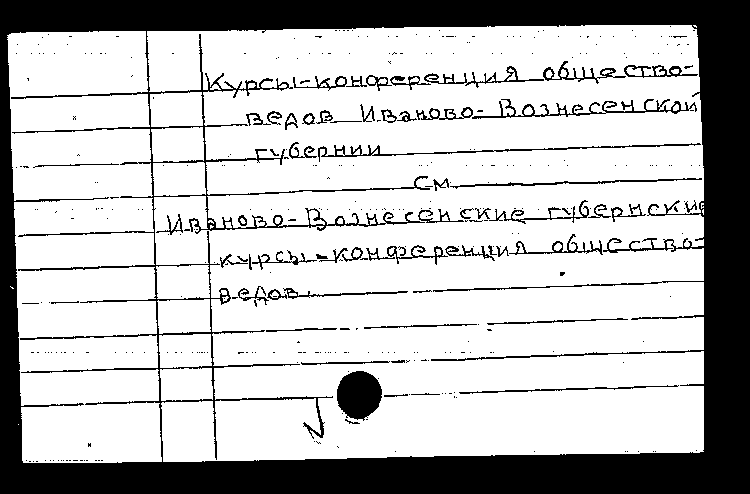 Курсы-конференция общество-
ведов Иваново-Вознесенской
губернии
См
Иваново-Вознесенские губернские
курсы-конференция общество-
ведов.